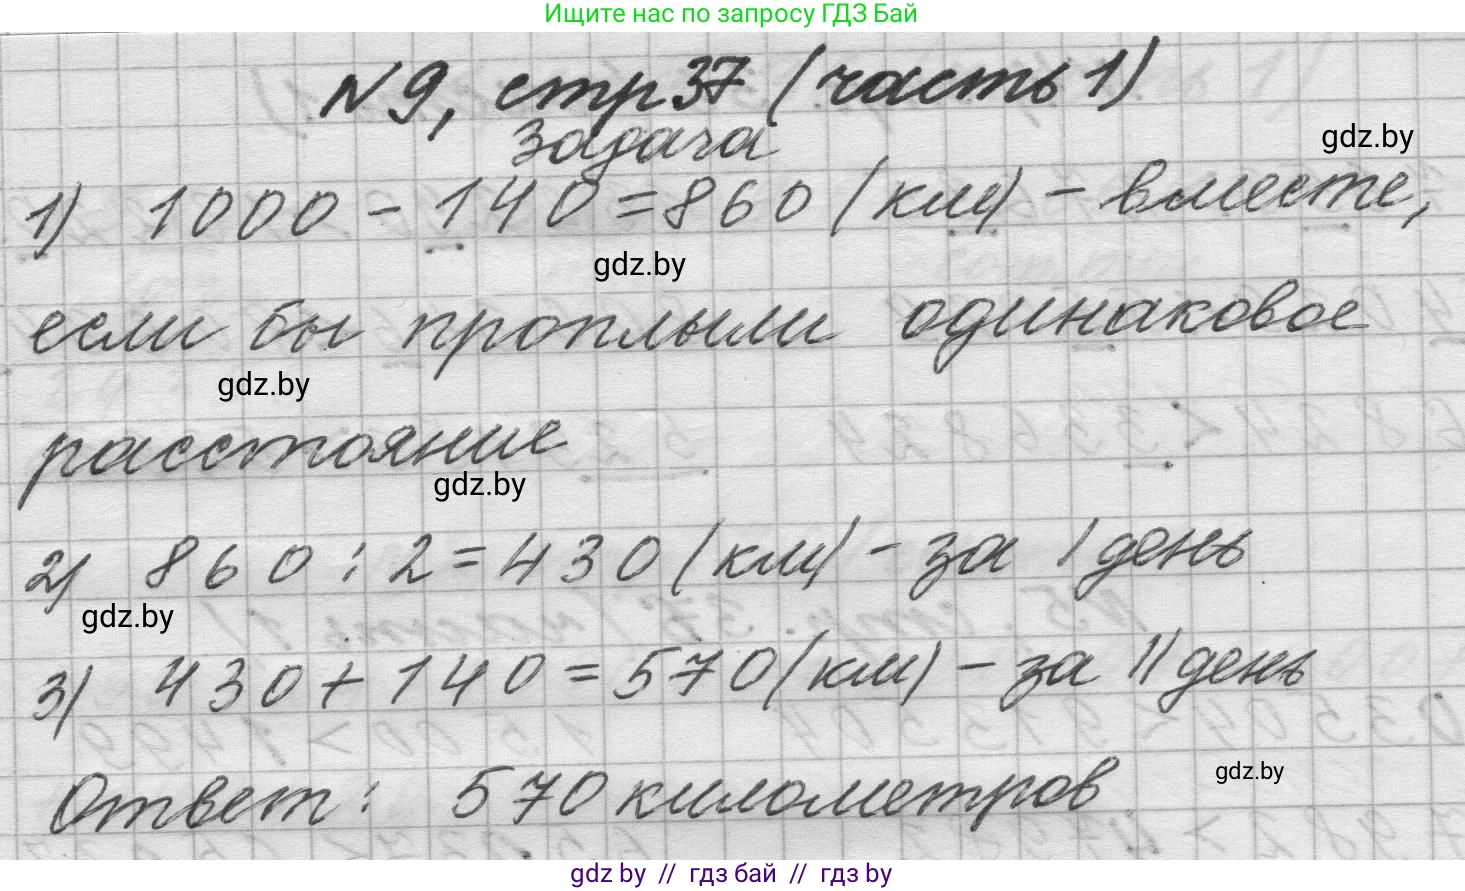 Ищите нас по запросу ГДЗ Бай
№9, стр 37 (часть 1)
gdz.by
Задача
1) 1000 - 140 = 860 (км) - вместе,
gdz.by
если бы проплыли одинаковое
gdz.by
расстояние
gdz.by
2) 860 : 2 = 430 (км) - за I день
gdz.by
3) 430 + 140 = 570 (км) - за II день
gdz.by
Ответ: 570 километров
gdz by // гдз бай // гдз by